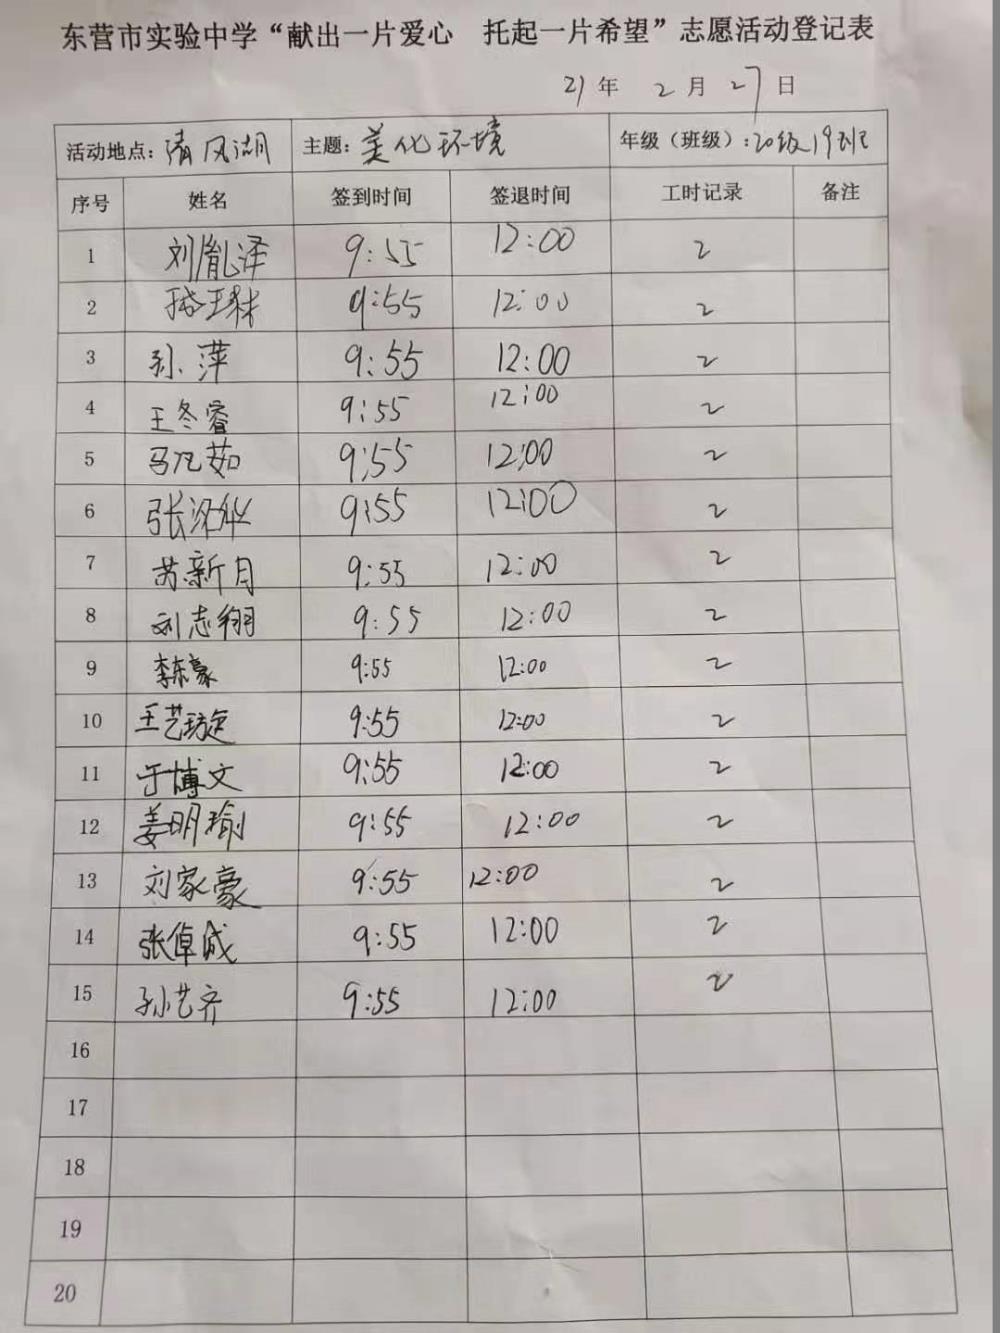 东营市实验中学“献出一片爱心 托起一片希望”志愿活动登记表
21年 2月 27日
活动地点：清风湖 主题：美化环境 年级（班级）：20级19班
序号 姓名 签到时间 签退时间 工时记录 备注
1 刘胤泽 9:55 12:00 2
2 9:55 12:00 2
3 孙萍 9:55 12:00 2
4 王冬睿 9:55 12:00 2
5 马凡茹 9:55 12:00 2
6 张 9:55 12:00 2
7 苏新月 9:55 12:00 2
8 刘志翔 9:55 12:00 2
9 李东豪 9:55 12:00 2
10 王艺璇 9:55 12:00 2
11 于博文 9:55 12:00 2
12 姜明瑜 9:55 12:00 2
13 刘家豪 9:55 12:00 2
14 张倬诚 9:55 12:00 2
15 孙艺齐 9:55 12:00 2
16
17
18
19
20